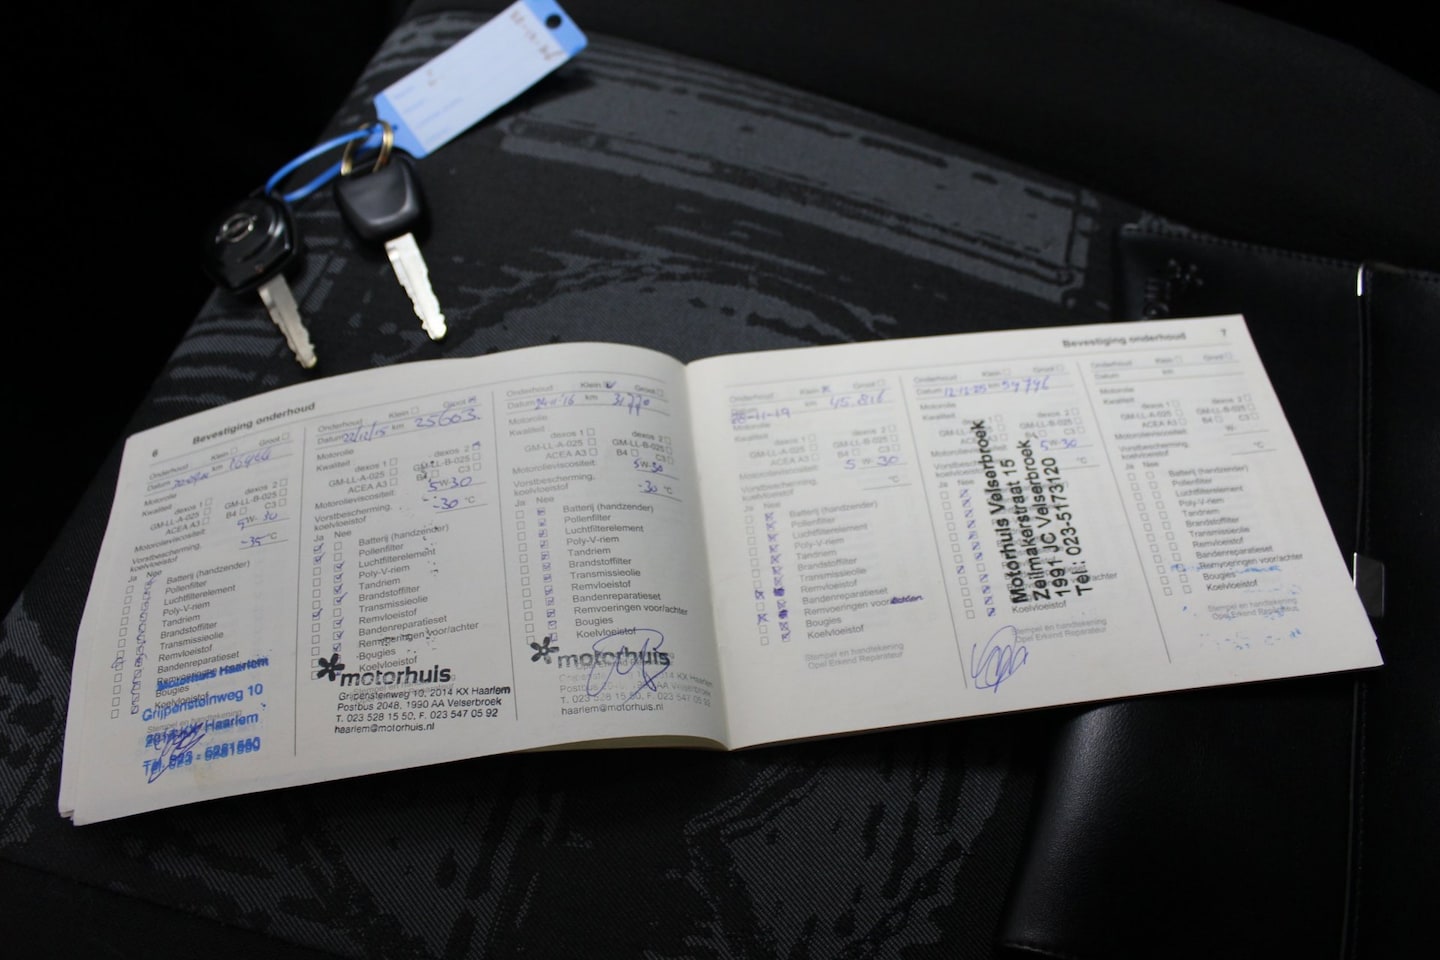 6
Bevestiging onderhoud
Onderhoud Klein Groot
Datum km
Motorolie
Kwaliteit dexos 1 dexos 2
GM-LL-A-025 GM-LL-B-025
ACEA A3 B4 C3
Motorolieviscositeit: 5W-30
Vorstbescherming, koelvloeistof -35 °C
Ja Nee
Batterij (handzender)
Pollenfilter
Luchtfilterelement
Poly-V-riem
Tandriem
Brandstoffilter
Transmissieolie
Remvloeistof
Bandenreparatieset
Bougies
Koelvloeistof
Stempel en handtekening
Motorhuis Haarlem
Grijpensteinweg 10
2014 KX Haarlem
Onderhoud Klein Groot
Datum 22/12/15 km 25603
Motorolie
Kwaliteit dexos 1 dexos 2
GM-LL-A-025 GM-LL-B-025
ACEA A3 B4 C3
Motorolieviscositeit: 5W-30
Vorstbescherming, koelvloeistof -30 °C
Ja Nee
Batterij (handzender)
Pollenfilter
Luchtfilterelement
Poly-V-riem
Tandriem
Brandstoffilter
Transmissieolie
Remvloeistof
Bandenreparatieset
Remvoeringen voor/achter
Bougies
Koelvloeistof
motorhuis
Grijpensteinweg 10, 2014 KX Haarlem
Postbus 2048, 1990 AA Velserbroek
T. 023 528 15 50, F. 023 547 05 92
haarlem@motorhuis.nl
Onderhoud Klein Groot
Datum 24-11-'16 km
Motorolie
Kwaliteit dexos 1 dexos 2
GM-LL-A-025 GM-LL-B-025
ACEA A3 B4 C3
Motorolieviscositeit: 5W-30
Vorstbescherming, koelvloeistof -30 °C
Ja Nee
Batterij (handzender)
Pollenfilter
Luchtfilterelement
Poly-V-riem
Tandriem
Brandstoffilter
Transmissieolie
Remvloeistof
Bandenreparatieset
Remvoeringen voor/achter
Bougies
Koelvloeistof
motorhuis
T. 023 528 15 50, F. 023 547 05 92
haarlem@motorhuis.nl
Bevestiging onderhoud 7
Onderhoud Klein Groot
Datum km 45.816
Motorolie
Kwaliteit dexos 1 dexos 2
GM-LL-A-025 GM-LL-B-025
ACEA A3 B4 C3
Motorolieviscositeit: 5W-30
Vorstbescherming, koelvloeistof °C
Ja Nee
Batterij (handzender)
Pollenfilter
Luchtfilterelement
Poly-V-riem
Tandriem
Brandstoffilter
Transmissieolie
Remvloeistof
Bandenreparatieset
Remvoeringen voor
Bougies
Koelvloeistof
Stempel en handtekening
Opel Erkend Reparateur
Onderhoud Klein Groot
Datum km
dexos 2
GM-LL-B-025
5W-30
°C
Ja Nee
Motorhuis Velserbroek
Zeilmakerstraat 15
1991 JC Velserbroek
Tel.: 023-5173120
Koelvloeistof
Stempel en handtekening
Opel Erkend Reparateur
Onderhoud Klein Groot
Datum km
Motorolie
Kwaliteit dexos 1 dexos 2
GM-LL-A-025 GM-LL-B-025
ACEA A3 B4 C3
Motorolieviscositeit: W-
Vorstbescherming, koelvloeistof °C
Ja Nee
Batterij (handzender)
Pollenfilter
Luchtfilterelement
Poly-V-riem
Tandriem
Brandstoffilter
Transmissieolie
Remvloeistof
Bandenreparatieset
Remvoeringen voor/achter
Bougies
Koelvloeistof
Stempel en handtekening
Opel Erkend Reparateur